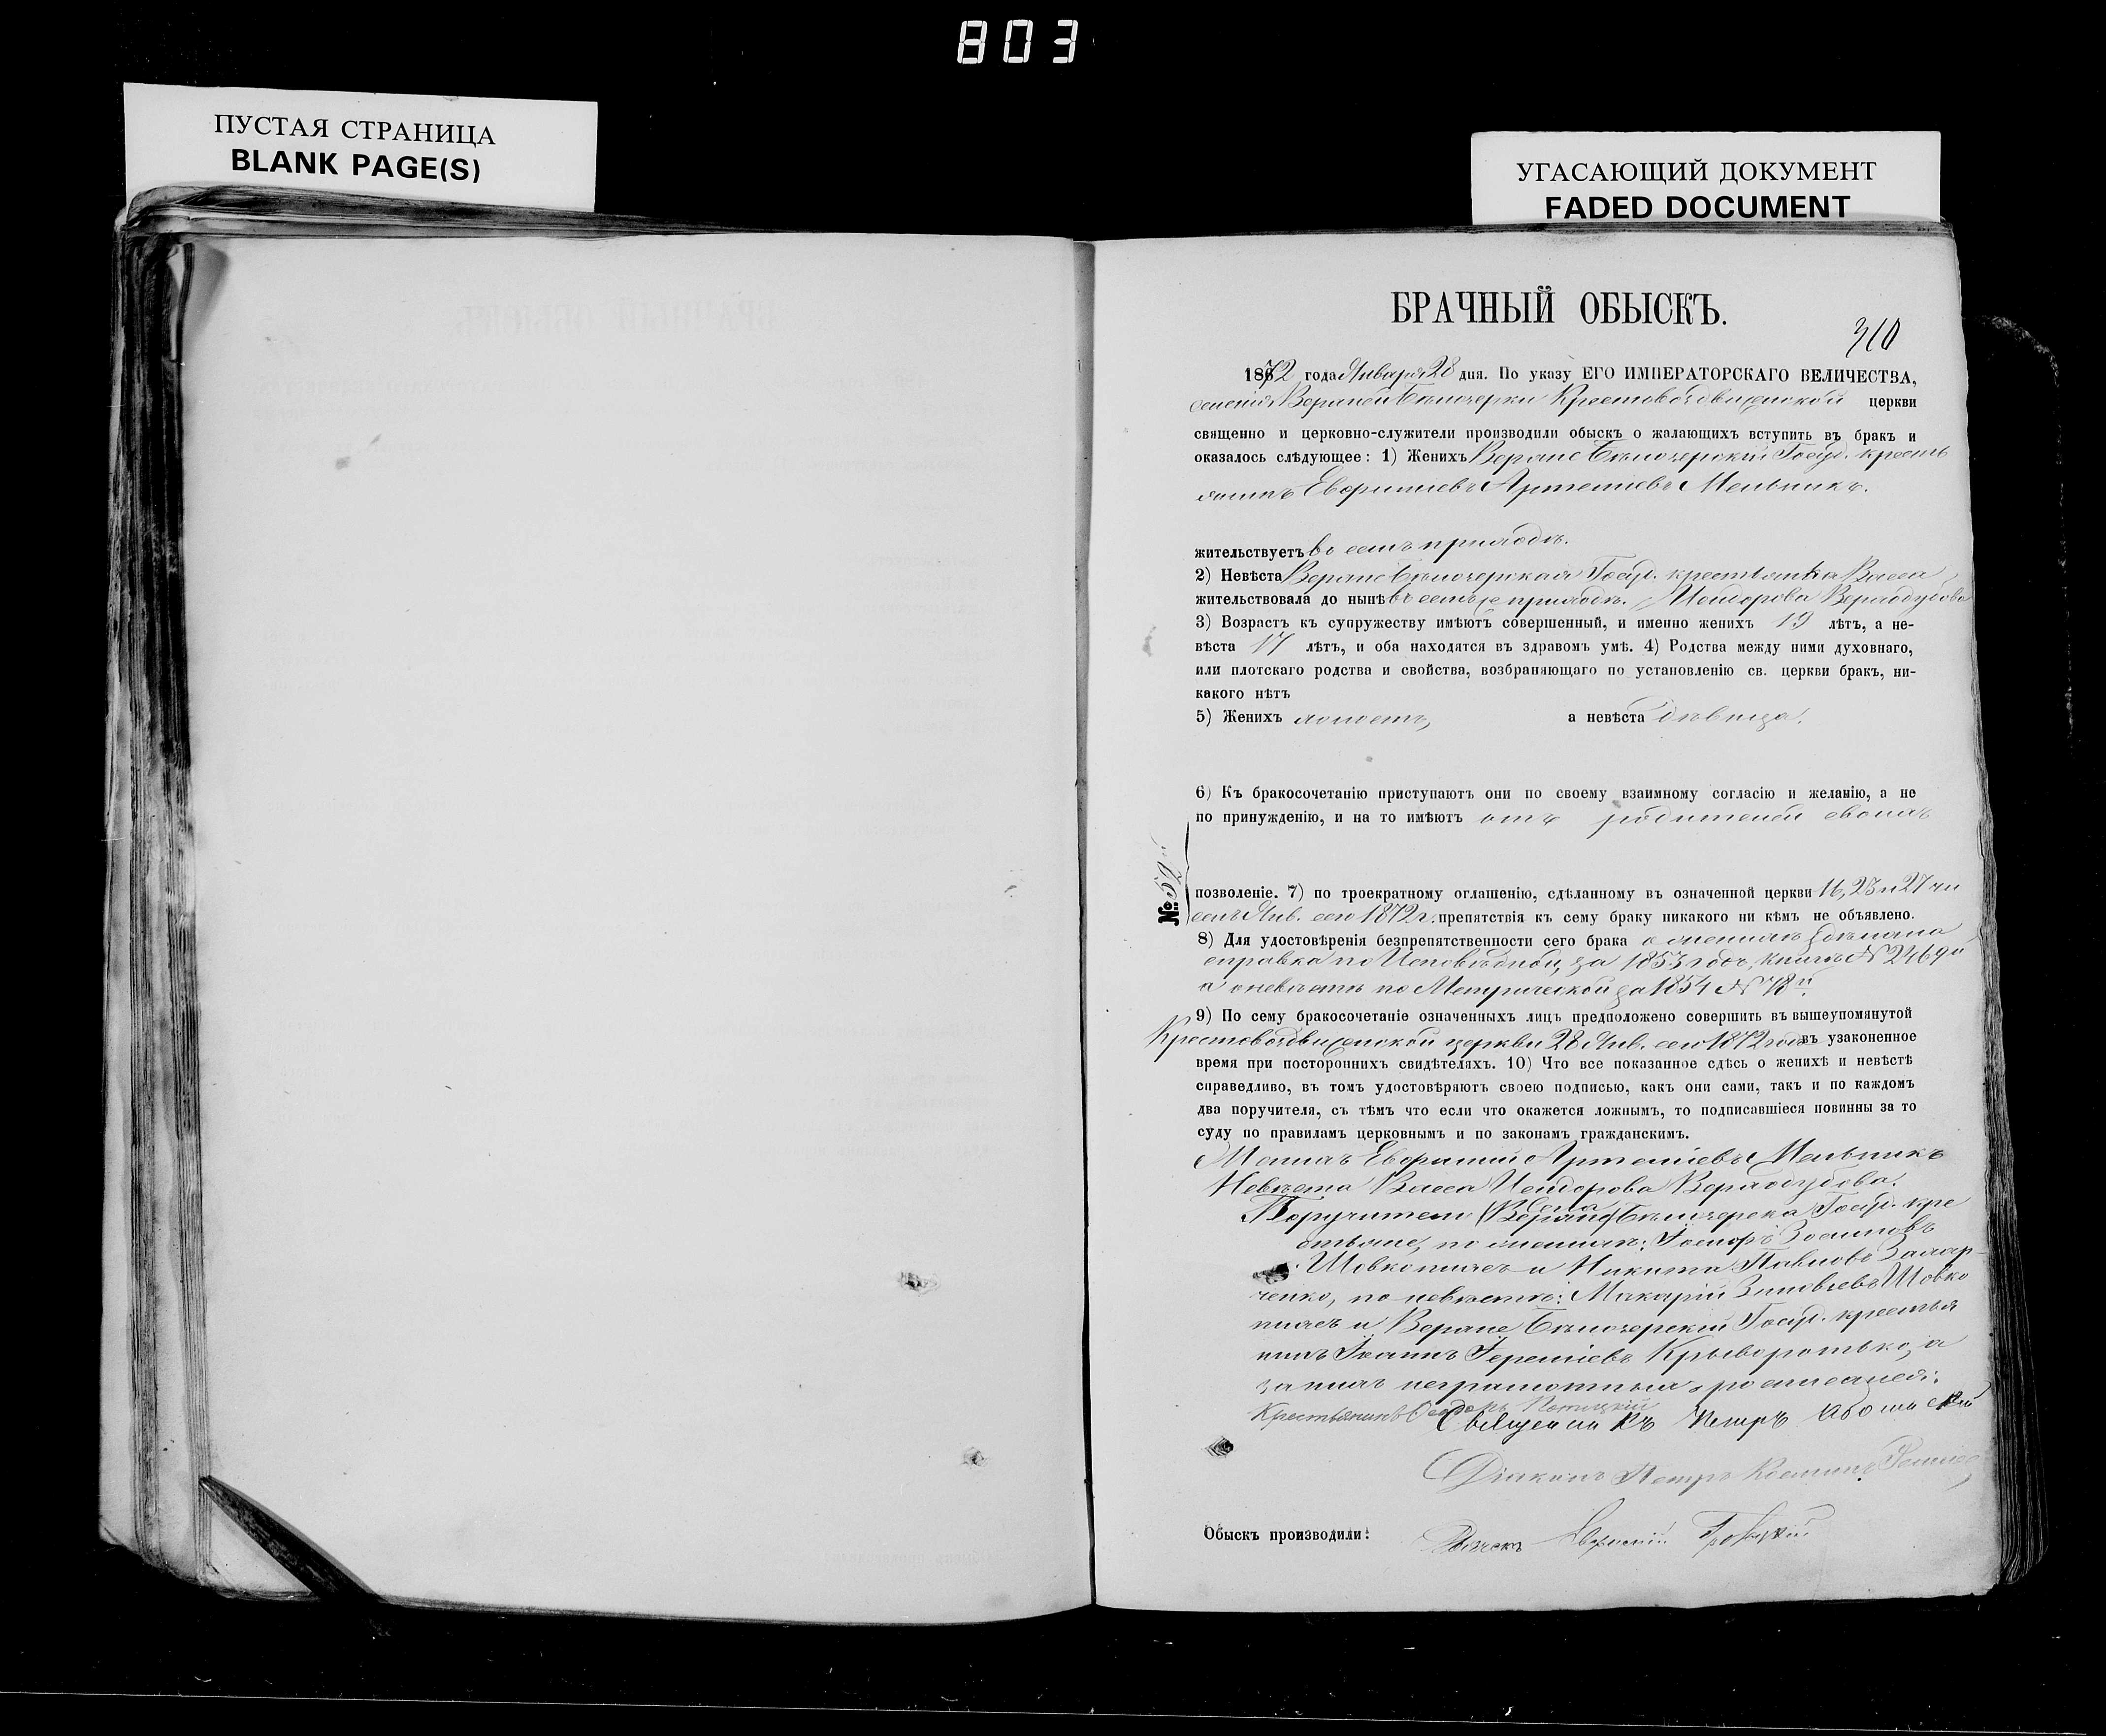 803
ПУСТАЯ СТРАНИЦА
BLANK PAGE(S)
УГАСАЮЩИЙ ДОКУМЕНТ
FADED DOCUMENT
БРАЧНЫЙ ОБЫСКЪ.
310
1872 года Января 28 дня. По указу ЕГО ИМПЕРАТОРСКАГО ВЕЛИЧЕСТВА,
селенія Верхней Бѣлозерки Крестовоздвиженской церкви
священно и церковно-служители производили обыскъ о жалающихъ вступить въ бракъ и
оказалось слѣдующее: 1) Женихъ Верхне Бѣлозерскій Госуд. кресть
янинъ Евфимиевъ Артемиевъ Мельникъ.
жительствуетъ въ семъ приходѣ.
2) Невѣста Верхне Бѣлозерская Госуд. крестьянка Васса
жительствовала до нынѣ въ семъ же приходѣ. Исидорова Верходубова
3) Возрастъ къ супружеству имѣютъ совершенный, и именно женихъ 19 лѣтъ, а не-
вѣста 17 лѣтъ, и оба находятся въ здравомъ умѣ. 4) Родства между ними духовнаго,
или плотскаго родства и свойства, возбраняющаго по установленію св. церкви бракъ, ни-
какого нѣтъ
5) Женихъ холостъ, а невѣста дѣвица.
6) Къ бракосочетанію приступаютъ они по своему взаимному согласію и желанію, а не
по принужденію, и на то имѣютъ отъ родителей своихъ
№ 52й
позволеніе. 7) по троекратному оглашенію, сдѣланному въ означенной церкви 16, 23 и 27 чи
селъ Янв. сего 1872 г. препятствія къ сему браку никакого ни кѣмъ не объявлено.
8) Для удостовѣренія безпрепятственности сего брака о женихѣ сдѣлана
справка по Исповѣдной, за 1853 годъ, книгѣ № 2469й
а о невѣстѣ по Метрической за 1854 № 78й
9) По сему бракосочетаніе означенныхъ лицъ предположено совершить въ вышеупомянутой
Крестовоздвиженской церкви 28 Янв. сего 1872 года въ узаконенное
время при постороннихъ свидѣтеляхъ. 10) Что все показанное сдѣсь о женихѣ и невѣстѣ
справедливо, въ томъ удостовѣряютъ своею подписью, какъ они сами, такъ и по каждомъ
два поручителя, съ тѣмъ что если что окажется ложнымъ, то подписавшіеся повинны за то
суду по правиламъ церковнымъ и по законамъ гражданскимъ.
Женихъ Евфимий Артеміевъ Мельникъ
Невѣста Васса Исидорова Верходубова.
Поручители села (Верхне) Бѣлозерека Госуд. кре
стьяне, по женихѣ: Зосимовъ
Шовкопляс и Никита Павловъ Захар-
ченко, по невѣстѣ: Макарій Зиновіевъ Шовко
плясъ и Верхне Бѣлозерскій Госуд. крестья
нинъ Іоаннъ Іереміевъ Крыворотько, а
за нихъ неграмотныхъ росписался:
Крестьянинъ
Священникъ Петръ
Діаконъ Петръ Косминъ
Обыскъ производили: